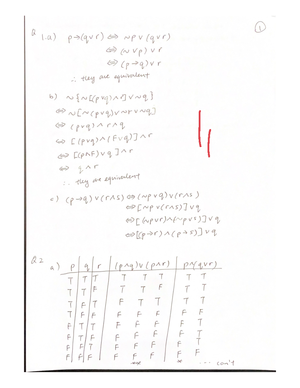 ①
Q.1.a) p→(q∨r) ⇔ ~p∨(q∨r)
⇔ (~∨p)∨r
⇔ (p→q)∨r
∴ they are equivalent
b) ~{~[(p∨q)∧r]∨~q}
⇔ ~[~(p∨q)∨~r∨~q]
⇔ (p∨q)∧r∧q
⇔ [(p∨q)∧(F∨q)]∧r
⇔ [(p∧F)∨q]∧r
⇔ q∧r
∴ they are equivalent
c) (p→q)∨(r∧s) ⇔ (~p∨q)∨(r∧s)
⇔ [~p∨(r∧s)]∨q
⇔ [(~p∨r)∧(~p∨s)]∨q
⇔ [(p→r)∧(p→s)]∨q
Q.2
a) p q r (p∧q)∨(p∧r) p∧(q∨r)
T T T T T T T T
T T F T T F T T
T F T F T T T T
T F F F F F F F
F T T F F F F T
F T F F F F F T
F F T F F F F T
F F F F F F F F
con't